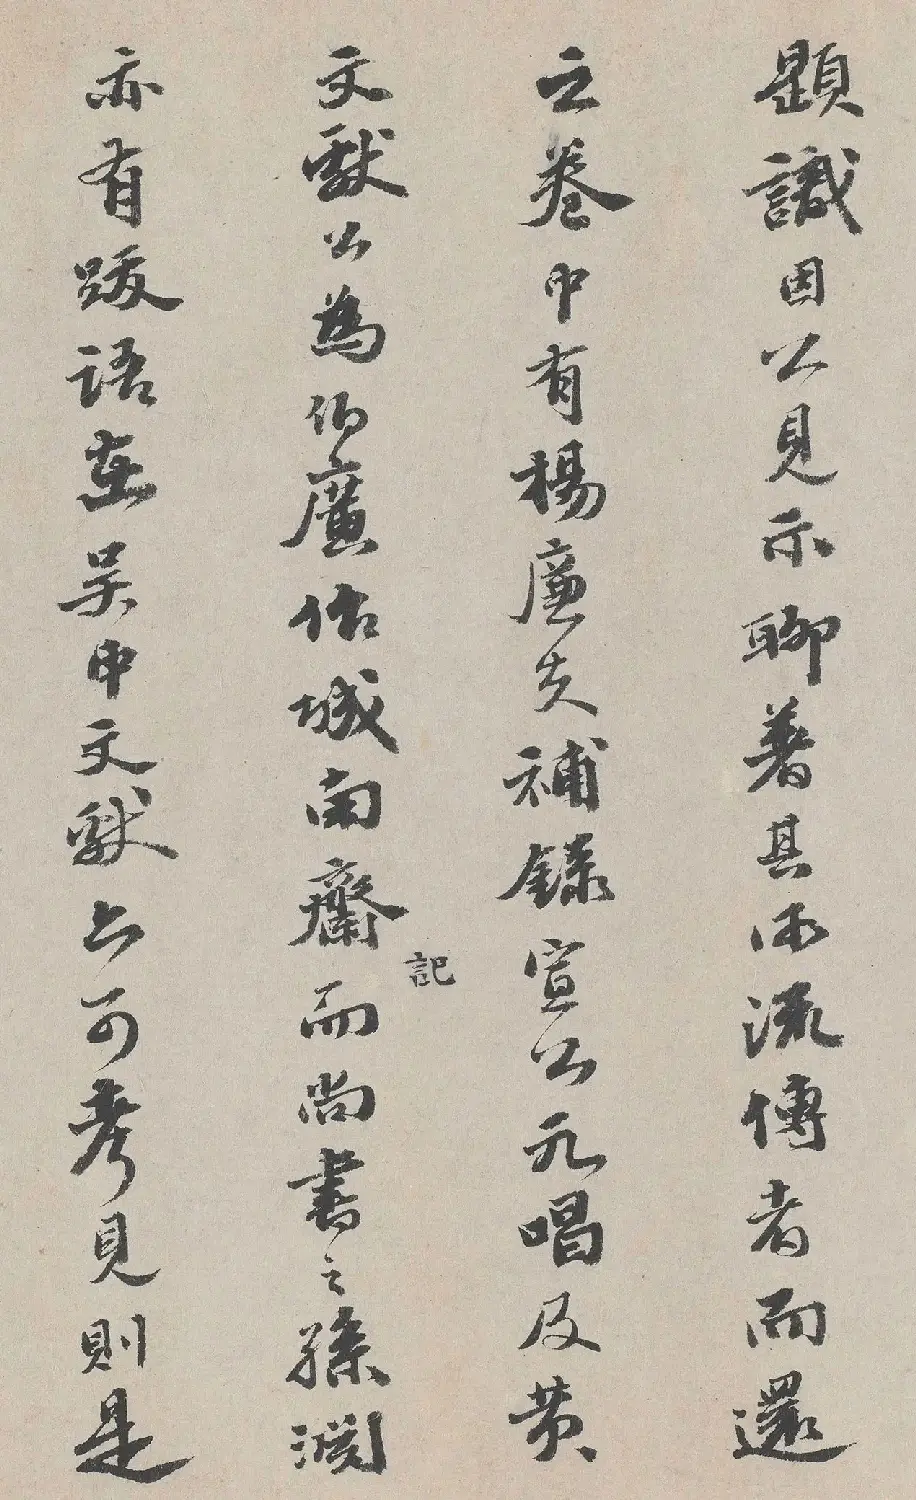 題識因公見示聊著其所流傳者而還
之卷中有楊廉夫補錄宣公元唱及黄
文獻公為伯廣作城南齋記而尚書之孫淵
亦有跋語在吴中文獻亦可考見則是